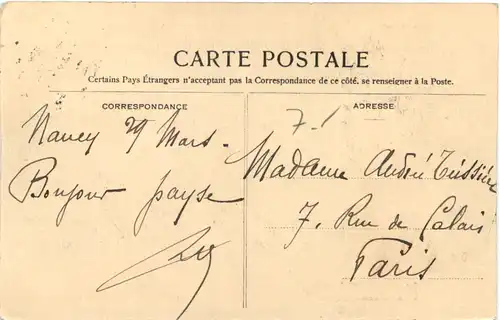 CARTE POSTALE
Certains Pays Étrangers n'acceptant pas la Correspondance de ce côté. se renseigner à la Poste.
CORRESPONDANCE
Nancy 29 Mars.
Bonjour payse
ADRESSE
7-1
Madame André
7. Rue de Calais
Paris